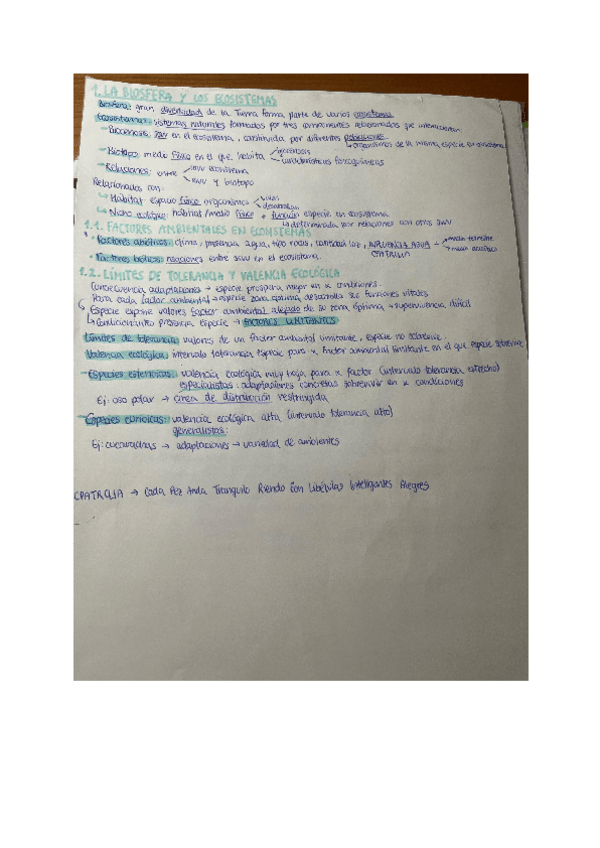 1. LA BIOSFERA Y LOS ECOSISTEMAS
Biosfera: gran diversidad de la Tierra forma parte de varios ecosistemas
Ecosistemas: sistemas naturales formados por tres componentes relacionados que interaccionan
- Biocenosis: svv en el ecosistema, constituida por diferentes poblaciones
organismos de la misma especie en ecosistema
- Biotopo: medio físico en el que habita
biocenosis
características fisicoquímicas
- Relaciones: entre
svv ecosistema
svv y biotopo
Relacionados con:
Hábitat: espacio físico organismos
viven
desarrollan
Nicho ecológico: hábitat/medio físico + función especie en ecosistema
determinada por relaciones con otros svv
1.1. FACTORES AMBIENTALES EN ECOSISTEMAS
- Factores abióticos: clima, presencia agua, tipo rocas, cantidad luz, INFLUENCIA AGUA
medio terrestre
medio acuático
CPATRCLIA
- Factores bióticos: relaciones entre svv en el ecosistema.
1.2. LÍMITES DE TOLERANCIA Y VALENCIA ECOLÓGICA
Consecuencia adaptaciones → especie prospera mejor en x ambientes.
Para cada factor ambiental → especie zona óptima, desarrolla sus funciones vitales
Especie expone valores factor ambiental alejado de su zona óptima → supervivencia difícil
condicionantes presencia especie → FACTORES LIMITANTES
Límites de tolerancia: valores de un factor ambiental limitante, especie no sobrevive.
Valencia ecológica: intervalo tolerancia especie para x factor ambiental limitante en el que especie sobrevive
- Especies estenoicas: valencia ecológica muy baja para x factor (intervalo tolerancia estrecho)
especialistas: adaptaciones concretas sobrevivir en x condiciones
Ej: oso polar → área de distribución restringida
- Especies eurioicas: valencia ecológica alta (intervalo tolerancia alto)
generalistas:
Ej: cucarachas → adaptaciones → variedad de ambientes
CPATRCLIA → Cada Pez Anda Tranquilo Riendo Con Libélulas Inteligentes Alegres